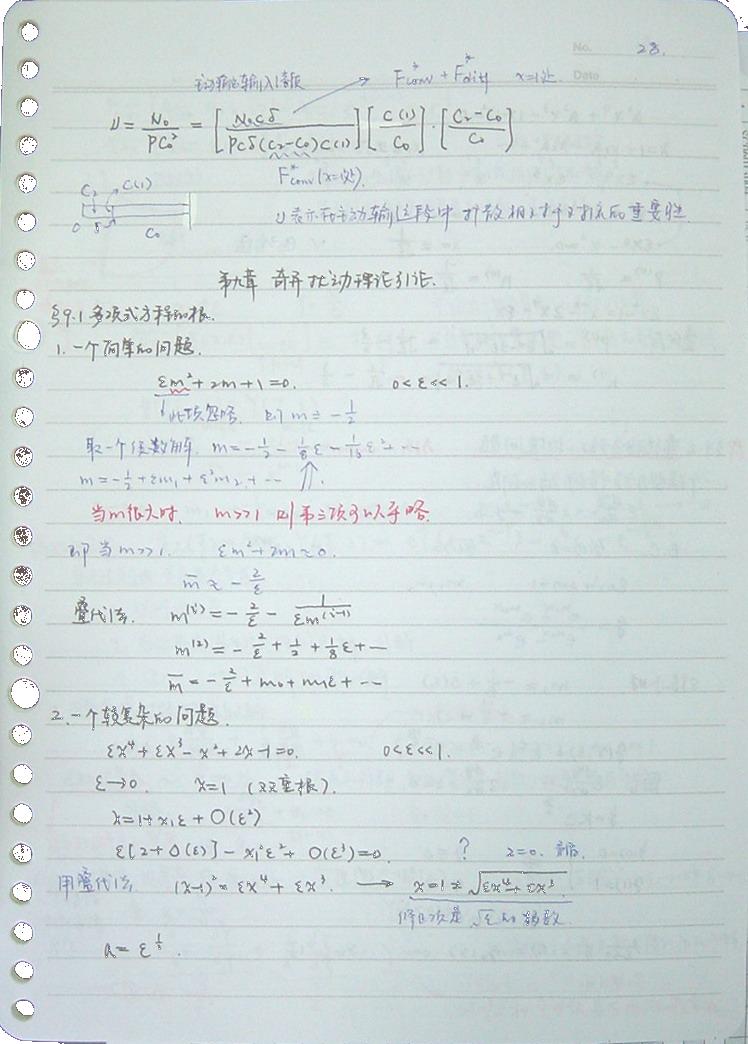 No. 28.
Date
主动输运输入溶质 → F*conv + F*diff x=1处.
ν = N₀/PC₀² = [N₀Cδ / PCδ(C₂-C₀)C(1)] [C(1)/C₀]·[C₂-C₀/C₀]
F*conv(x=1处).
C₂ C(1)
0 δ C₀
ν表示在主动输运段中扩散相对于对流的重要性.
第九章 奇异扰动理论引论.
§9.1 多项式方程的根.
1. 一个简单的问题.
εm²+2m+1=0. 0<ε≪1.
此项忽略. 则 m ≐ -1/2
取一个级数解. m=-1/2 - 1/8 ε - 1/16 ε² + ...
m=-1/2+εm₁+ε²m₂+...
当m很大时. m>>1 则第三项可以忽略.
即当m>>1. εm²+2m≈0.
m̄ ≈ -2/ε
叠代法. m⁽ⁱ⁾=-2/ε - 1/εm⁽ⁱ⁻¹⁾
m⁽²⁾=-2/ε+1/2+1/8ε+...
m̄=-2/ε+m₀+m₁ε+...
2. 一个较复杂的问题.
εx⁴+εx³-x²+2x-1=0. 0<ε≪1.
ε→0. x=1 (双重根).
x=1+x₁ε+O(ε²)
ε[2+O(ε)]-x₁²ε²+O(ε³)=0. ? 2=0.
用叠代法. (x-1)²=εx⁴+εx³. → x=1±√εx⁴+εx³.
修正项是√ε的级数.